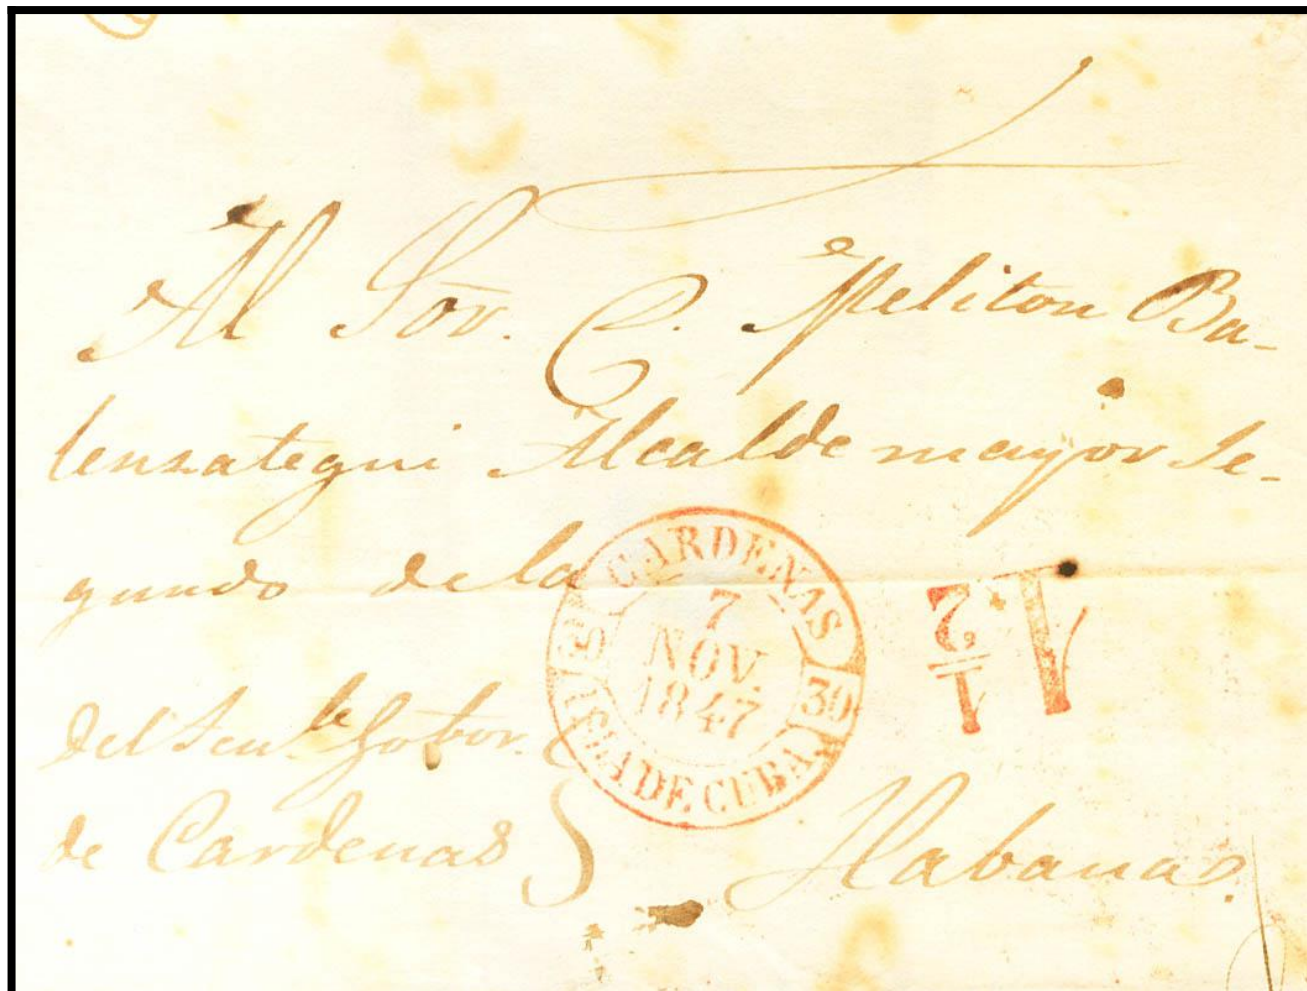 Al Sor. C. Meliton Ba-
lenzategui Alcalde mayor Se-
gundo de la
CARDENAS
7
NOV
1847
30
ISLA DE CUBA
1 1/2
del Ten.te Gobor.
de Cardenas Habana.